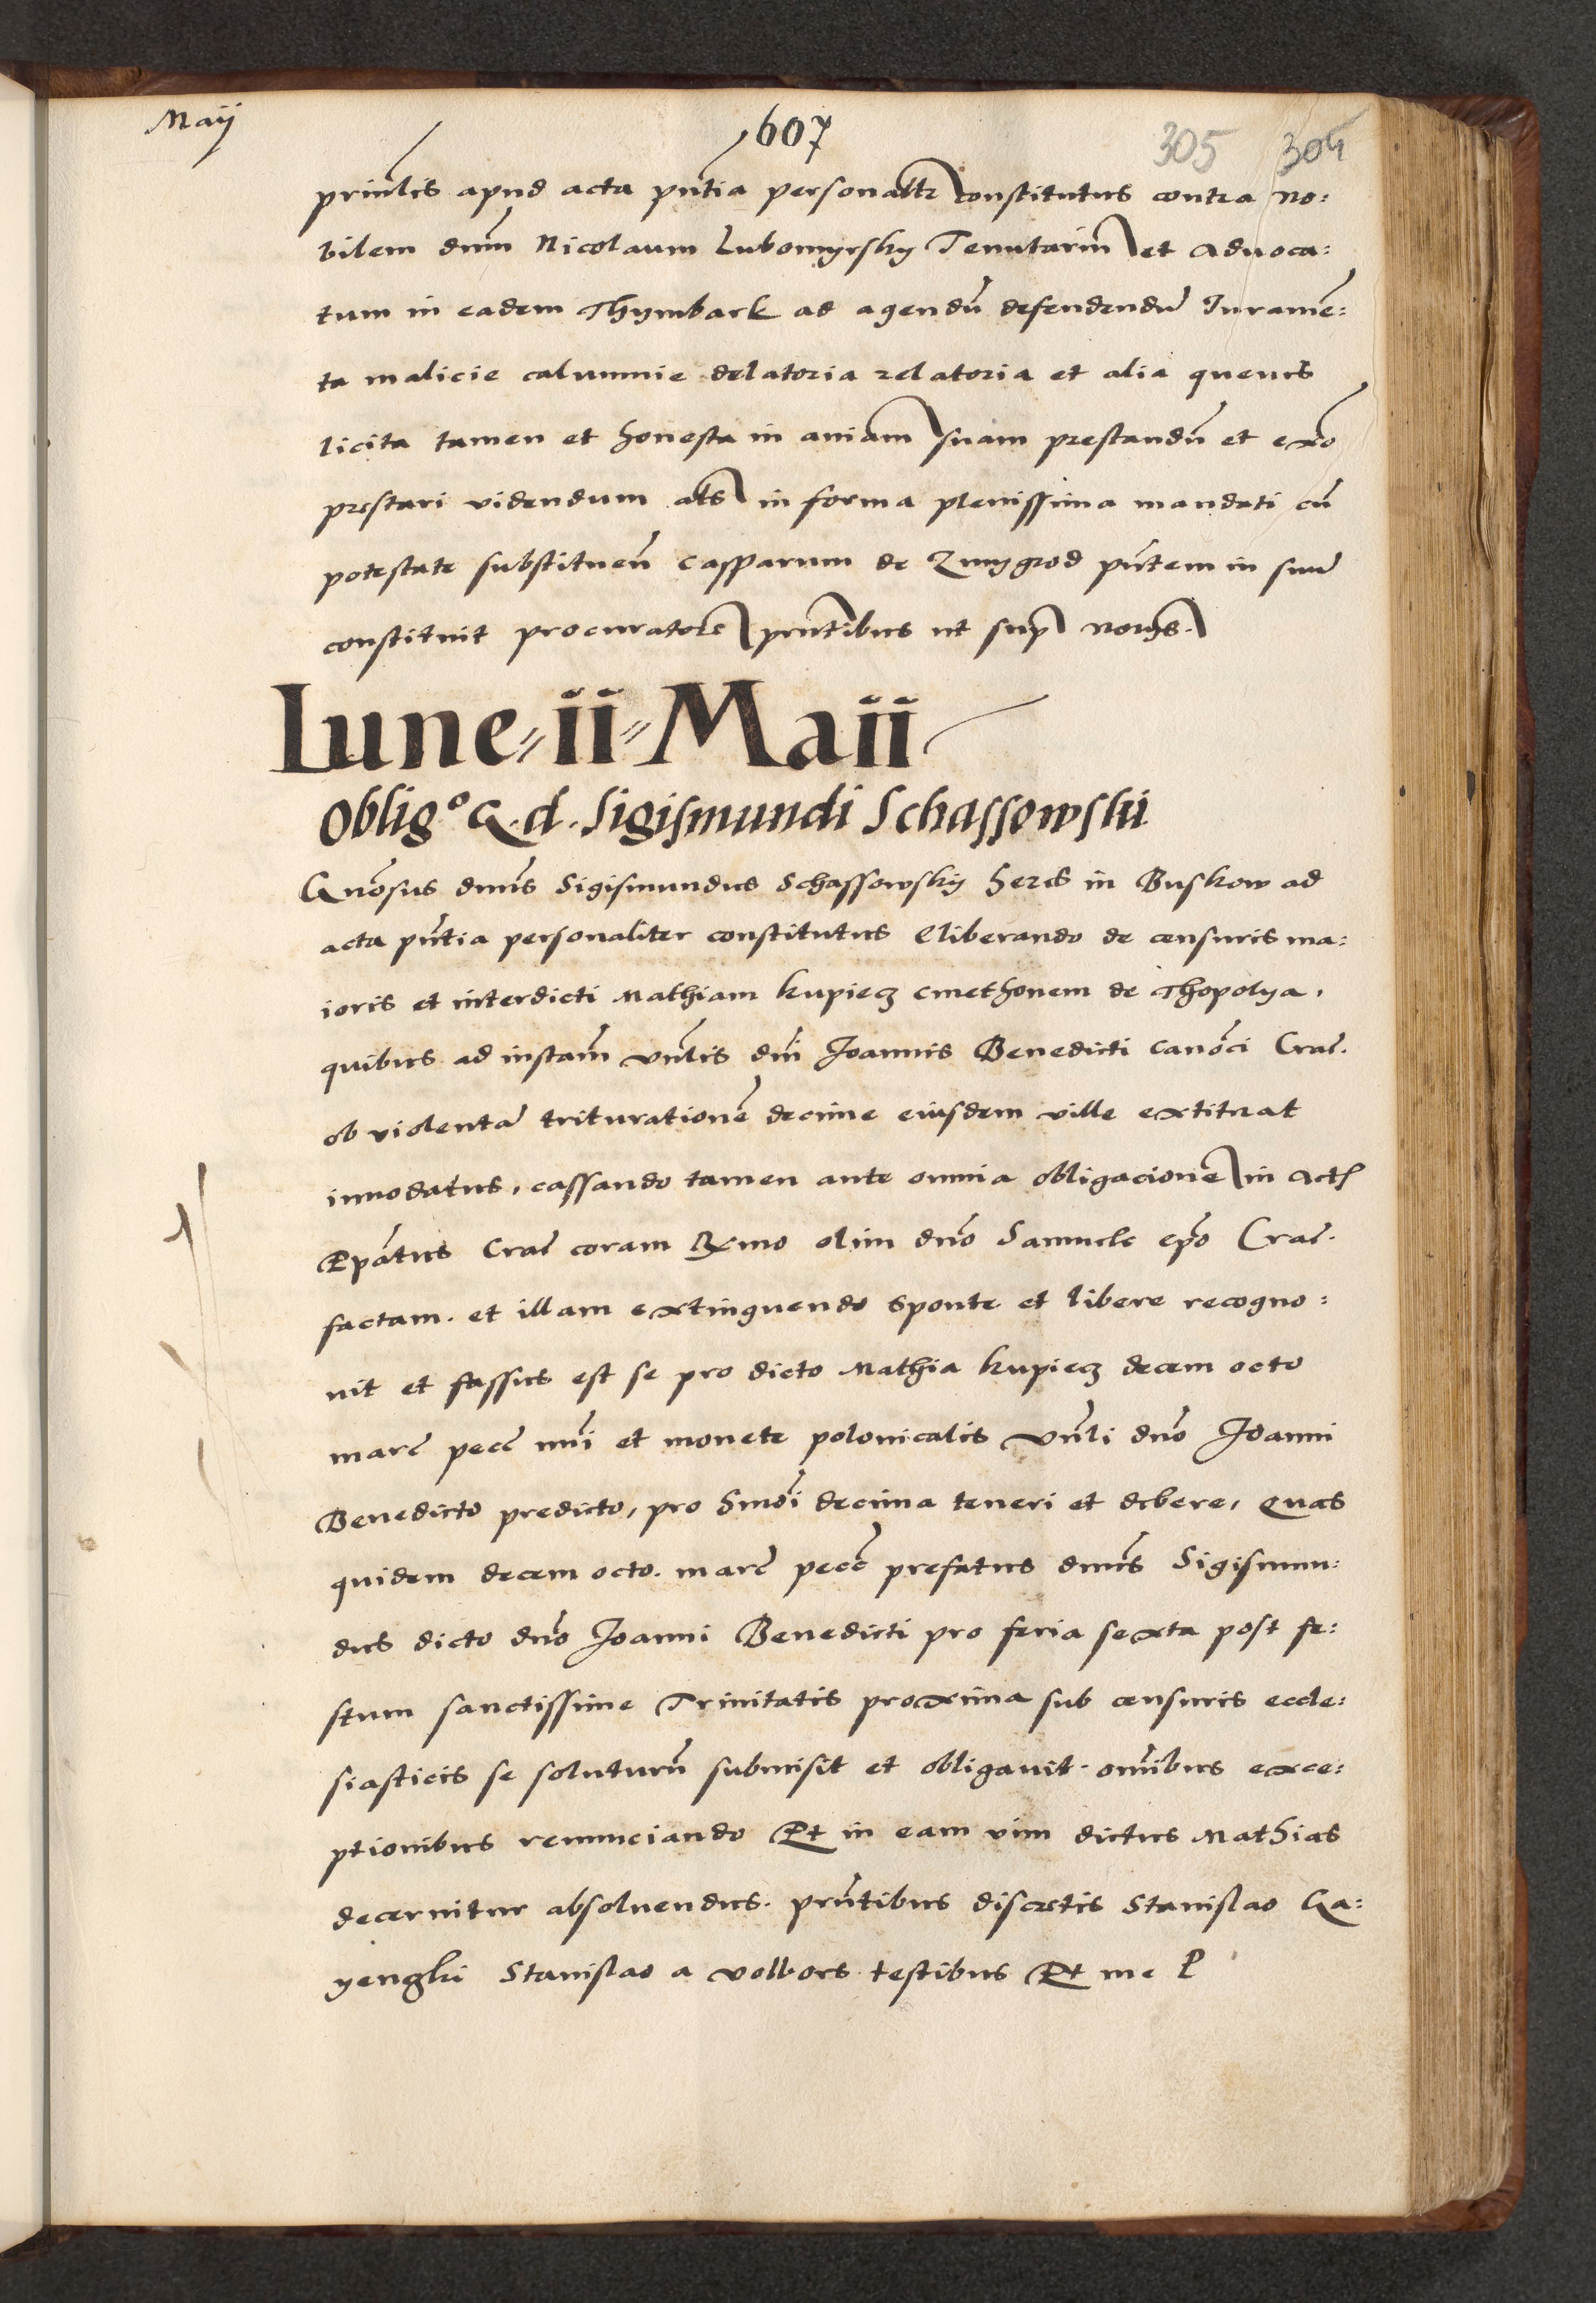 Maij
607
305 304
prinlis apud acta pntia personaltr constitutus contra no:
bilem dnm Nicolaum Lubomyrsky Tenutarin et Aduoca:
tum in eadem Thymbark ad agendu defendendu Iurame:
ta malicie calumnie delatoria relatoria et alia queuis
licita tamen et honesta in aniam suam prestandu et exo
prestari videndum als in forma plenissima mandati cu
potestate substituen Casparum de Zmygrod pntem in suu
constituit procuratore pntibus ut sup nomys.
Lune ii Maii
Obligo G. d. Sigismundi Schassowski
Gnosus dnus Sigismundus Schassowsky heres in Buskow ad
acta pntia personaliter constitutus Eliberando de censuris ma:
ioris et interdicti Mathiam kupiecz Cmethonem de Thopolya,
quibus ad instam vnlis dni Joannis Benedicti canoci Crac.
ob violenta triturationē decime eiusdem ville extiterat
innodatus, cassando tamen ante omnia obligacione in Act
Epatus Crac coram Rmo olim dno Samuele epo Crac.
factam. et illam extinguendo sponte et libere recogno:
uit et fassus est se pro dicto Mathia kupiecz decem octo
marc pecc nui et monete polonicalis vnli dno Joanni
Benedicto predicto, pro hmoi decima teneri et debere, Quas
quidem decem octo. marc pecc prefatus dnus Sigismun:
dus dicto dno Joanni Benedicti pro feria sexta post fe:
stum sanctissime Trinitatis proxima sub censuris eccle:
siasticis se soluturu submisit et obligauit. omibus exce:
ptionibus renunciando Et in eam vim dictus Mathias
decernitur absoluendus. pntibus discretis Stanislao Ga:
yenghi Stanislao a volbors testibus Et me P